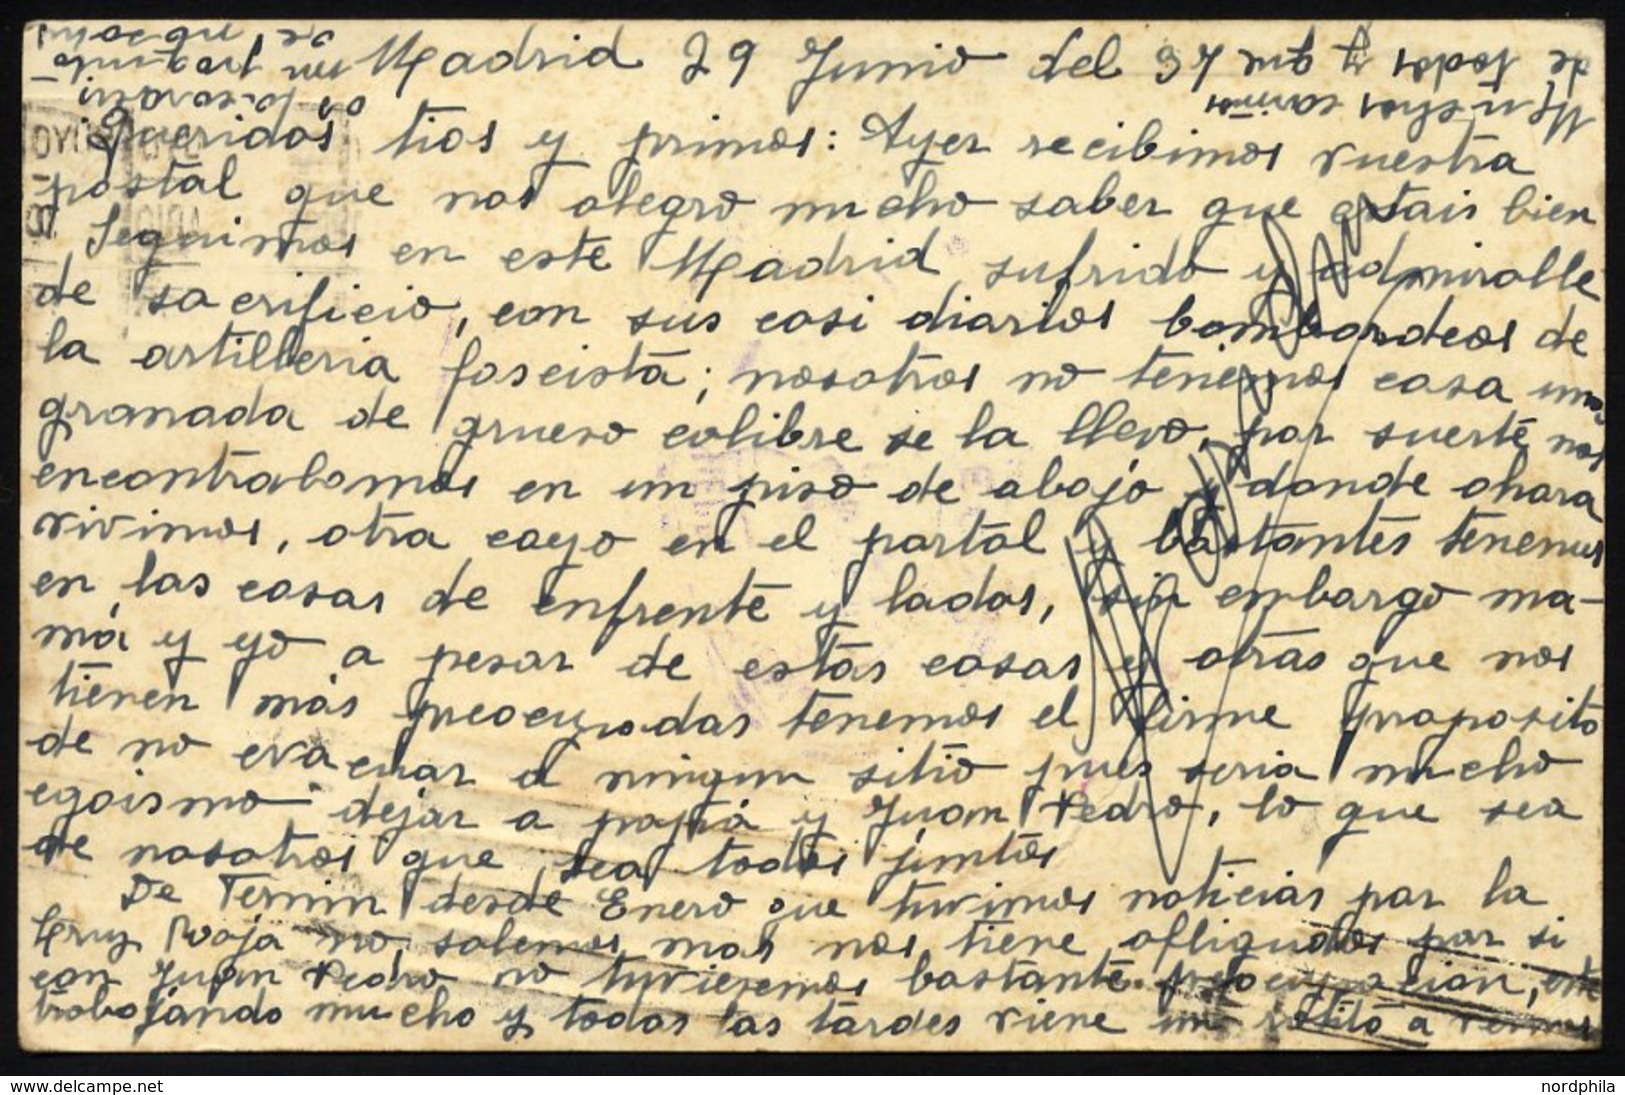 Madrid 29 Junio del 37
Queridos tios y primos: Ayer recibimos vuestra
postal que nos alegro mucho saber que estais bien
Seguimos en este Madrid sufrido y admiralle
de sacrificio, con sus casi diarios bombardeos de
la artilleria fascista; nosotros no tenemos casa una
granada de grueso calibre se la llevo, por suerte nos
encontrabamos en un piso de abajo y donde ahora
vivimos, otra cayo en el portal y bastantes tenemos
en las casas de enfrente y lados, sin embargo ma-
má y yo a pesar de estas cosas y otras que nos
tienen más preocupadas tenemos el firme proposito
de no evacuar a ningun sitio pues seria mucho
egoismo dejar a papá y Juan Pedro, lo que sea
de nosotros que sea todos juntos
De Fermin desde Enero que tuvimos noticias por la
Cruz Roja no sabemos mas nos tiene afligidos por si
con Juan Pedro no tuvieramos bastante preocupacion, este
trabajando mucho y todas las tardes viene un ratito a vernos
de todos y que
Muchos cariños
OYO
delcampe.net
nordphila